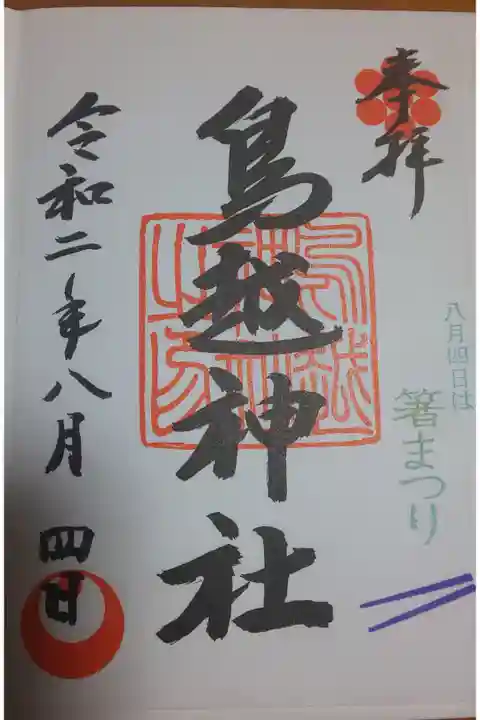 奉拝
八月四日は
箸まつり
鳥越神社
令和二年八月四日